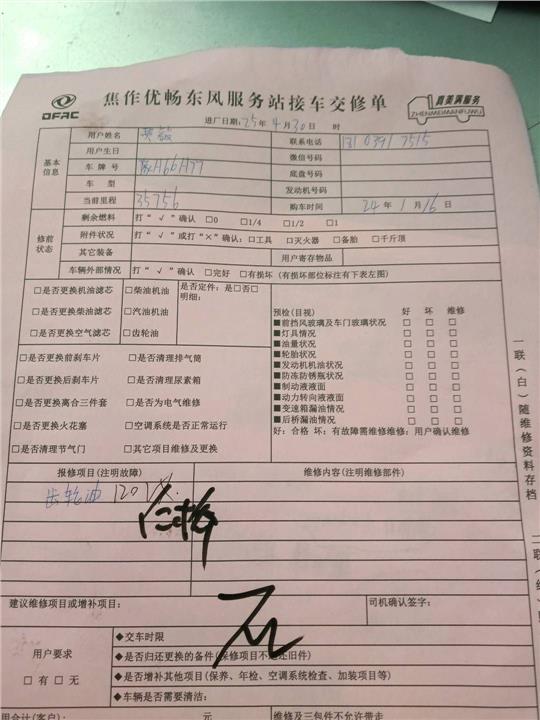 DFAC
焦作优畅东风服务站接车交修单
真美满服务
ZHENMEIMANFUWU
进厂日期:25年4月30日 时
基本信息
用户姓名 联系电话
用户生日 微信号码
车牌号 底盘号码
车型 发动机号码
当前里程 35756 购车时间 24年1月16日
修前状态
剩余燃料 打“√”确认 □0 □1/4 □1/2 □1
附件状况 打“√”或打“×”确认:□工具 □灭火器 □备胎 □千斤顶
其它装备 用户寄存物品
车辆外部情况 打“√”确认 □完好 □有损坏 (有损坏部位标注有下表左图)
□是否更换机油滤芯 □柴油机油 是否定件:是□否□
明细:
□是否更换柴油滤芯 □汽油机油
□是否更换空气滤芯 □齿轮油
□是否更换前刹车片 □是否清理排气筒
□是否更换后刹车片 □是否清理尿素箱
□是否更换离合三件套 □是否为电气维修
□是否更换火花塞 □空调系统是否正常运行
□是否清理节气门 □其它项目维修及更换
预检(目视) 好 坏 维修
■前挡风玻璃及车门玻璃状况 □ □ □
■灯具情况 □ □ □
■油量状况 □ □ □
■轮胎状况 □ □ □
■发动机机油状况 □ □ □
■防冻防锈瓶状况 □ □ □
■制动液液面 □ □ □
■动力转向液液面 □ □ □
■变速箱漏油情况 □ □ □
■后桥漏油情况 □ □ □
好:合格 坏:有故障需维修维修:用户确认维修
报修项目(注明故障) 维修内容(注明维修部件)
齿轮油
建议维修项目或增补项目: 司机确认签字:
用户要求
□有 □无
◆交车时限
◆是否归还更换的备件(保修项目不退还旧件)
◆是否增补其他项目(保养、年检、空调系统检查、加装项目等)
◆车辆是否需要清洁:
用合计(客户): 元 维修及三包件不允许带走
一联(白)随维修资料存档